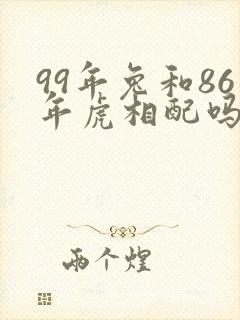 99年兔和86
年虎相配吗
两个煌